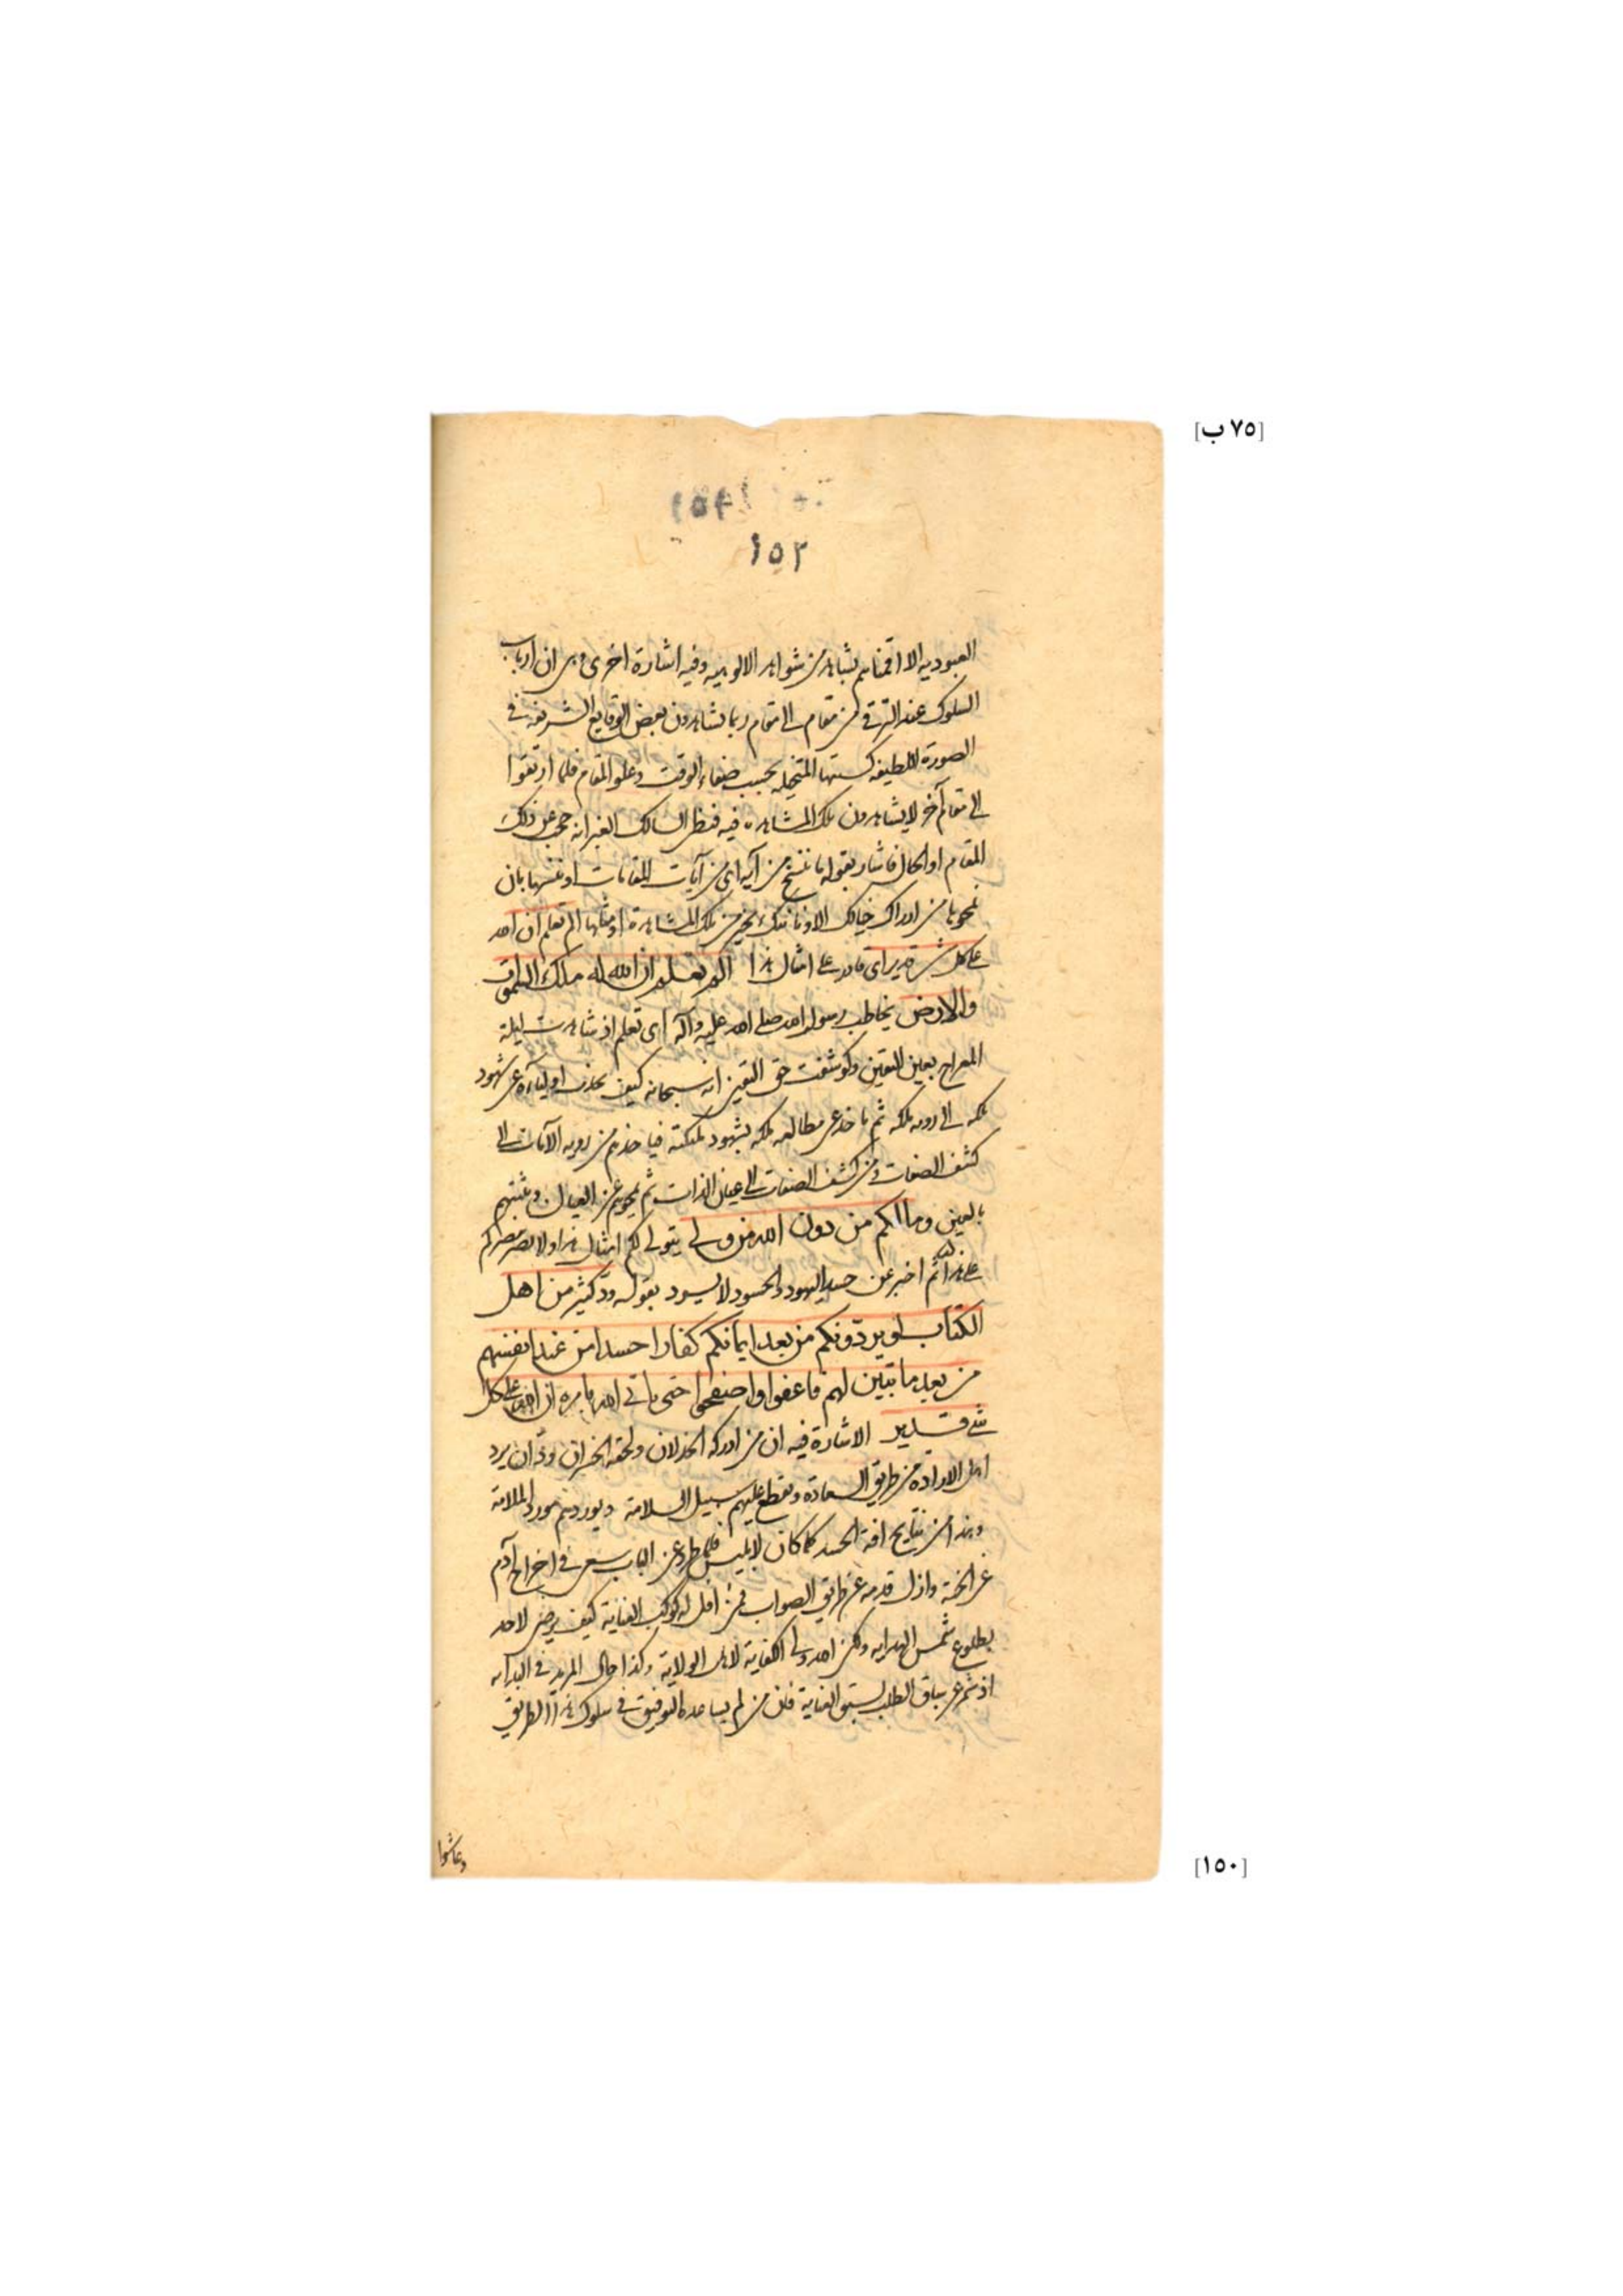 [٧٥ ب]
١٥٢
العبودية الا اقمناهم بشاهد من شواهد الالوهية وفيه اشارة اخرى وهى ان ارباب
السلوك عند الترقى من مقام الى مقام ربما يشاهدون بعض الوقايع الشريفة فى
الصورة اللطيفة كستها المتخيلة بحسب صفاء الوقت وعلو المقام فلما ارتقوا
الى مقام آخر لا يشاهدون تلك المشاهدة فيه فيظن السالك الغر انه حجب عن ذلك
المقام او الحال فاشار بقوله ما ننسخ من آية اى من آيات المقامات او ننسها بان
نمحوها من ادراك خيالك الا وناتك بخير من تلك المشاهدة او مثلها الم تعلم ان الله
على كل شىء قدير اى قادر على امثال هذا الم تعلم ان الله له ملك السموات
والارض يخاطب رسول الله صلى الله عليه وآله اى تعلم اذ شاهدت ليلة
المعراج بعين اليقين وكوشفت حق اليقين انه سبحانه كيف يجذب اولياءه عن شهود
ملكه الى روية ملكه ثم ياخذ عن مطالعة ملكه بشهود ملكته فياخذهم من روية الآيات الى
كشف الصفات ومن كشف الصفات الى عيان الذات ثم يمحوهم عن العيان ويثبتهم
بالعين وما لكم من دون الله من ولى يتولى لكم امثال هذا ولا نصير ينصركم
على هذا ثم اخبر عن حسد اليهود والحسود لا يسود بقوله ودّ كثير من اهل
الكتاب لو يردّونكم من بعد ايمانكم كفارا حسدا من عند انفسهم
من بعد ما تبين لهم فاعفوا واصفحوا حتى ياتى الله بامره ان الله على كل
شىء قدير الاشارة فيه ان من ادركه الخذلان ولحقه الخسران ودّ ان يرد
اهل الارادة من طريق السعادة ويقطع عليهم سبيل السلامة ويوردهم مورد الملامة
وهذا من نتايج افة الحسد كما كان لابليس فلما طرد عن الباب سعى فى اخراج آدم
عن الجنة وازل قدمه عن طريق الصواب فمن افل له كوكب العناية كيف يرضى لاحد
بطلوع شمس الهداية ولكن الله ولى الكفاية لاهل الولاية وكذا حال المريد فى البداية
اذ شمر عن ساق الطلب لسبق العناية فان من لم يساعده التوفيق فى سلوك هذا الطريق
وعاشوا
[١٥٠]